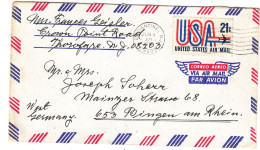 Mrs. Frances Geissler
Crown Point Road
Thorofare, N.J. 08203
USA 21c
UNITED STATES AIR MAIL
CORREO AEREO
VIA AIR MAIL
PAR AVION
Mr. & Mrs.
Joseph Scherr
Mainzer Strasse 68
West 653 Bingen am Rhein.
Germany.